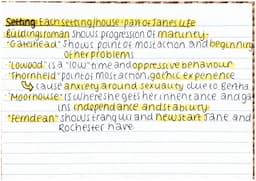 Setting Each setting/house = part of Janes life
Buildingsroman shows progression of maturity.
"Gateshead" Shows point of most action and beginning
of her problems
"Lowood" is a "low" time and oppressive behaviour
"Thornfield" point of most action, gothic experience
↳ cause anxiety around sexuality due to Bertha
"Moorhouse" is where she gets her inheritance and ga
ins independence and stability
"Ferndean" shows tranquil and new start Jane and
Rochester have